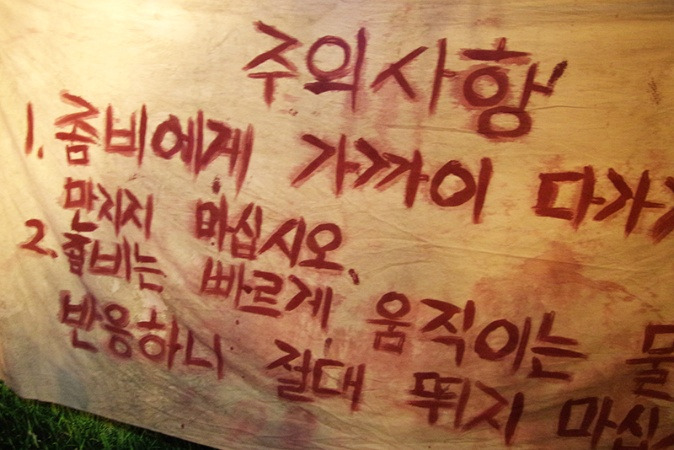 주의사항
1. 좀비에게 가까이 다가
만지지 마십시오.
2. 좀비는 빠르게 움직이는 물
반응하니 절대 뛰지 마십